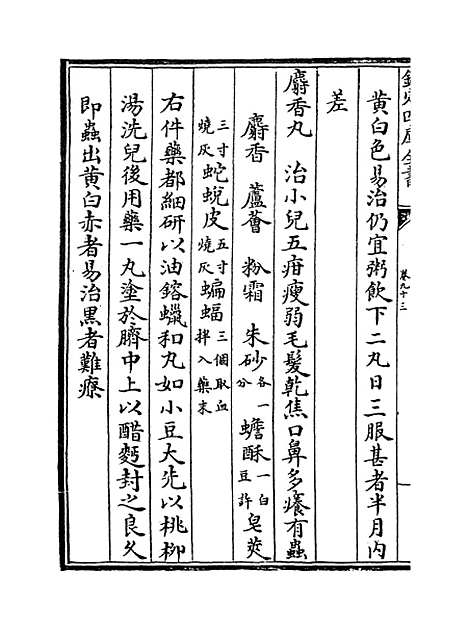 欽定四庫全書
卷九十三
黄白色易治仍宜粥飲下二丸日三服甚者半月內
差
麝香丸 治小兒五疳瘦弱毛髮乾焦口鼻多癢有蟲
麝香 蘆薈 粉霜 朱砂各一分 蟾酥一白豆許 皂莢
三寸燒灰 蛇蛻皮五寸燒灰 蝙蝠三個取血拌入藥末
右件藥都細研以油鎔蠟和丸如小豆大先以桃柳
湯洗兒後用藥一丸塗於臍中上以醋麪封之良久
即蟲出黄白赤者易治黒者難療